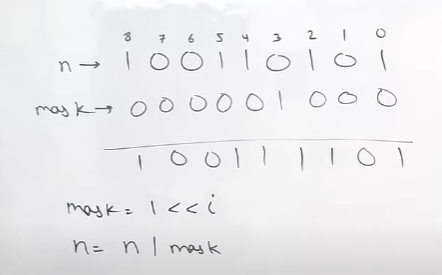 8 7 6 5 4 3 2 1 0
n → 1 0 0 1 1 0 1 0 1
mask → 0 0 0 0 0 1 0 0 0
1 0 0 1 1 1 1 0 1
mask = 1 << i
n = n | mask